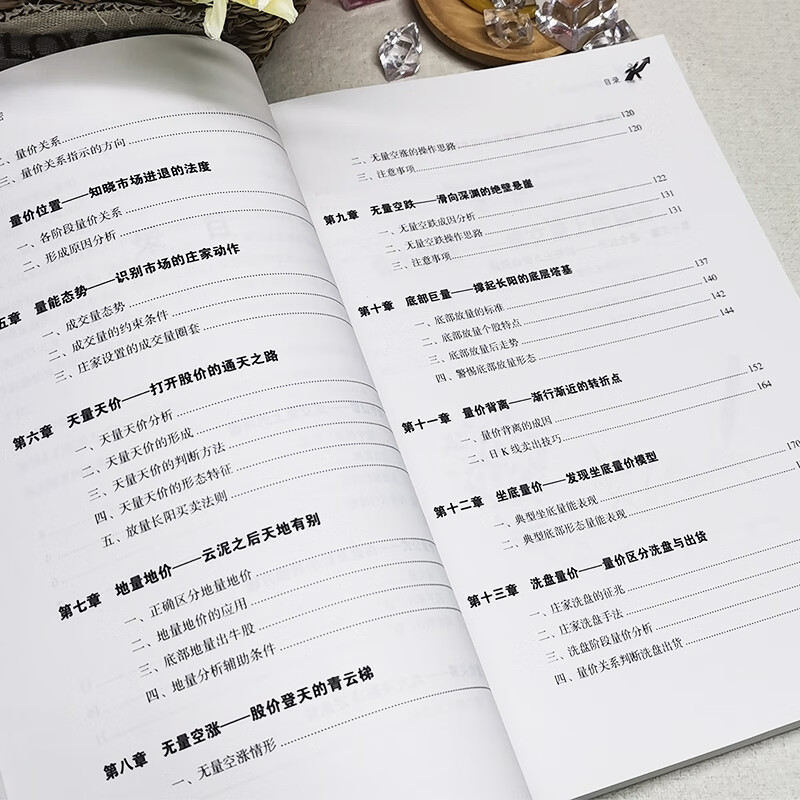 二、量价关系
三、量价关系指示的方向
量价位置——知晓市场进退的法度
一、各阶段量价关系
二、形成原因分析
五章 量能态势——识别市场的庄家动作
一、成交量态势
二、成交量的约束条件
三、庄家设置的成交量圈套
第六章 天量天价——打开股价的通天之路
一、天量天价分析
二、天量天价的形成
三、天量天价的判断方法
四、天量天价的形态特征
五、放量长阳买卖法则
第七章 地量地价——云泥之后天地有别
一、正确区分地量地价
二、地量地价的应用
三、底部地量出牛股
四、地量分析辅助条件
第八章 无量空涨——股价登天的青云梯
一、无量空涨情形
目录
二、无量空涨的操作思路 120
三、注意事项 120
第九章 无量空跌——滑向深渊的绝壁悬崖
一、无量空跌成因分析 122
二、无量空跌操作思路 131
三、注意事项 131
第十章 底部巨量——撑起长阳的底层塔基
一、底部放量的标准 137
二、底部放量个股特点 140
三、底部放量后走势 142
四、警惕底部放量形态 144
第十一章 量价背离——渐行渐近的转折点
一、量价背离的成因 152
二、日K线卖出技巧 164
第十二章 坐底量价——发现坐底量价模型
一、典型坐底量能表现 170
二、典型底部形态量能表现
第十三章 洗盘量价——量价区分洗盘与出货
一、庄家洗盘的征兆
二、庄家洗盘手法
三、洗盘阶段量价分析
四、量价关系判断洗盘出货